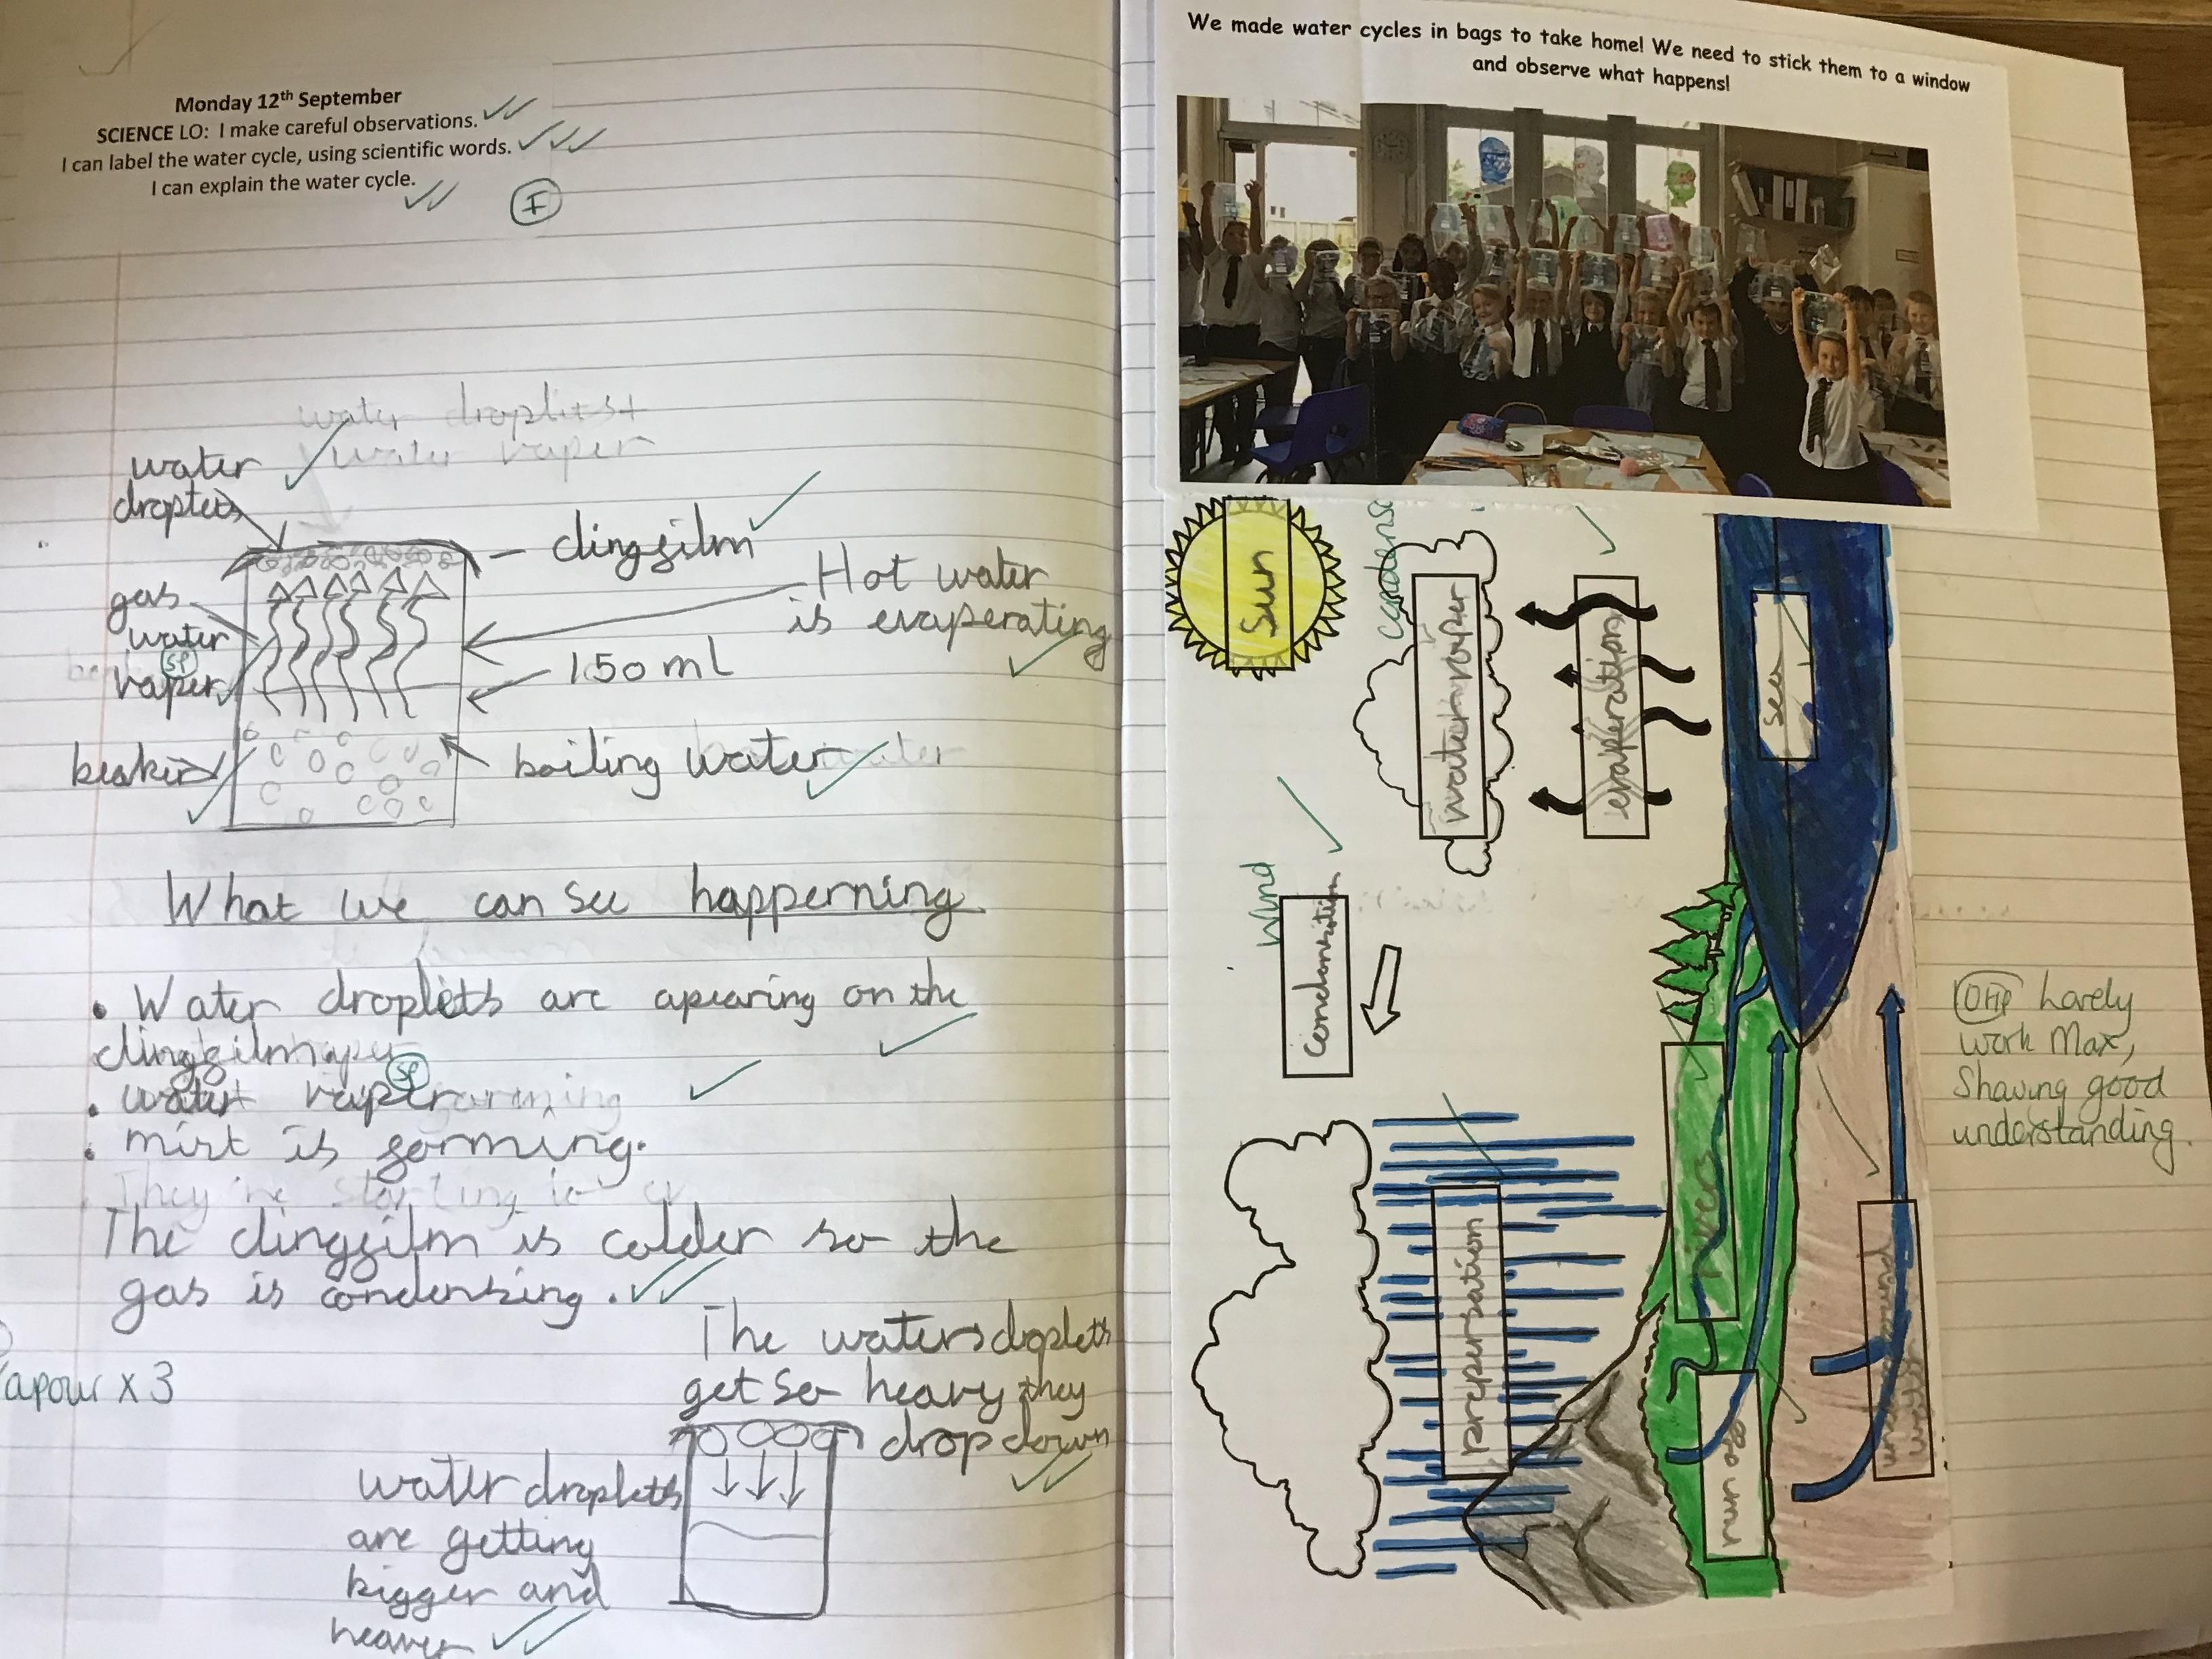 Monday 12th September
SCIENCE LO: I make careful observations.
I can label the water cycle, using scientific words.
I can explain the water cycle.
I
water droplets +
water vaper
water
droplets
clingfilm
gas
water
sp
vaper
Hot water
is evaperating
150 ml
beaker
boiling water
What we can see happerning
• Water droplets are apearing on the
clingfilm
sp
• water vaper forming
• mist is forming.
They're starting to
The clingfilm is colder so the
gas is condensing.
The waters droplets
get so heavy they
drop down
apour x 3
water droplets
are getting
bigger and
heaver
We made water cycles in bags to take home! We need to stick them to a window
and observe what happens!
Sun
condense
water vaper
evaperation
sea
wind
Condensation
prepersation
rivers
run off
OFIP Lovely
work Max,
Showing good
understanding.